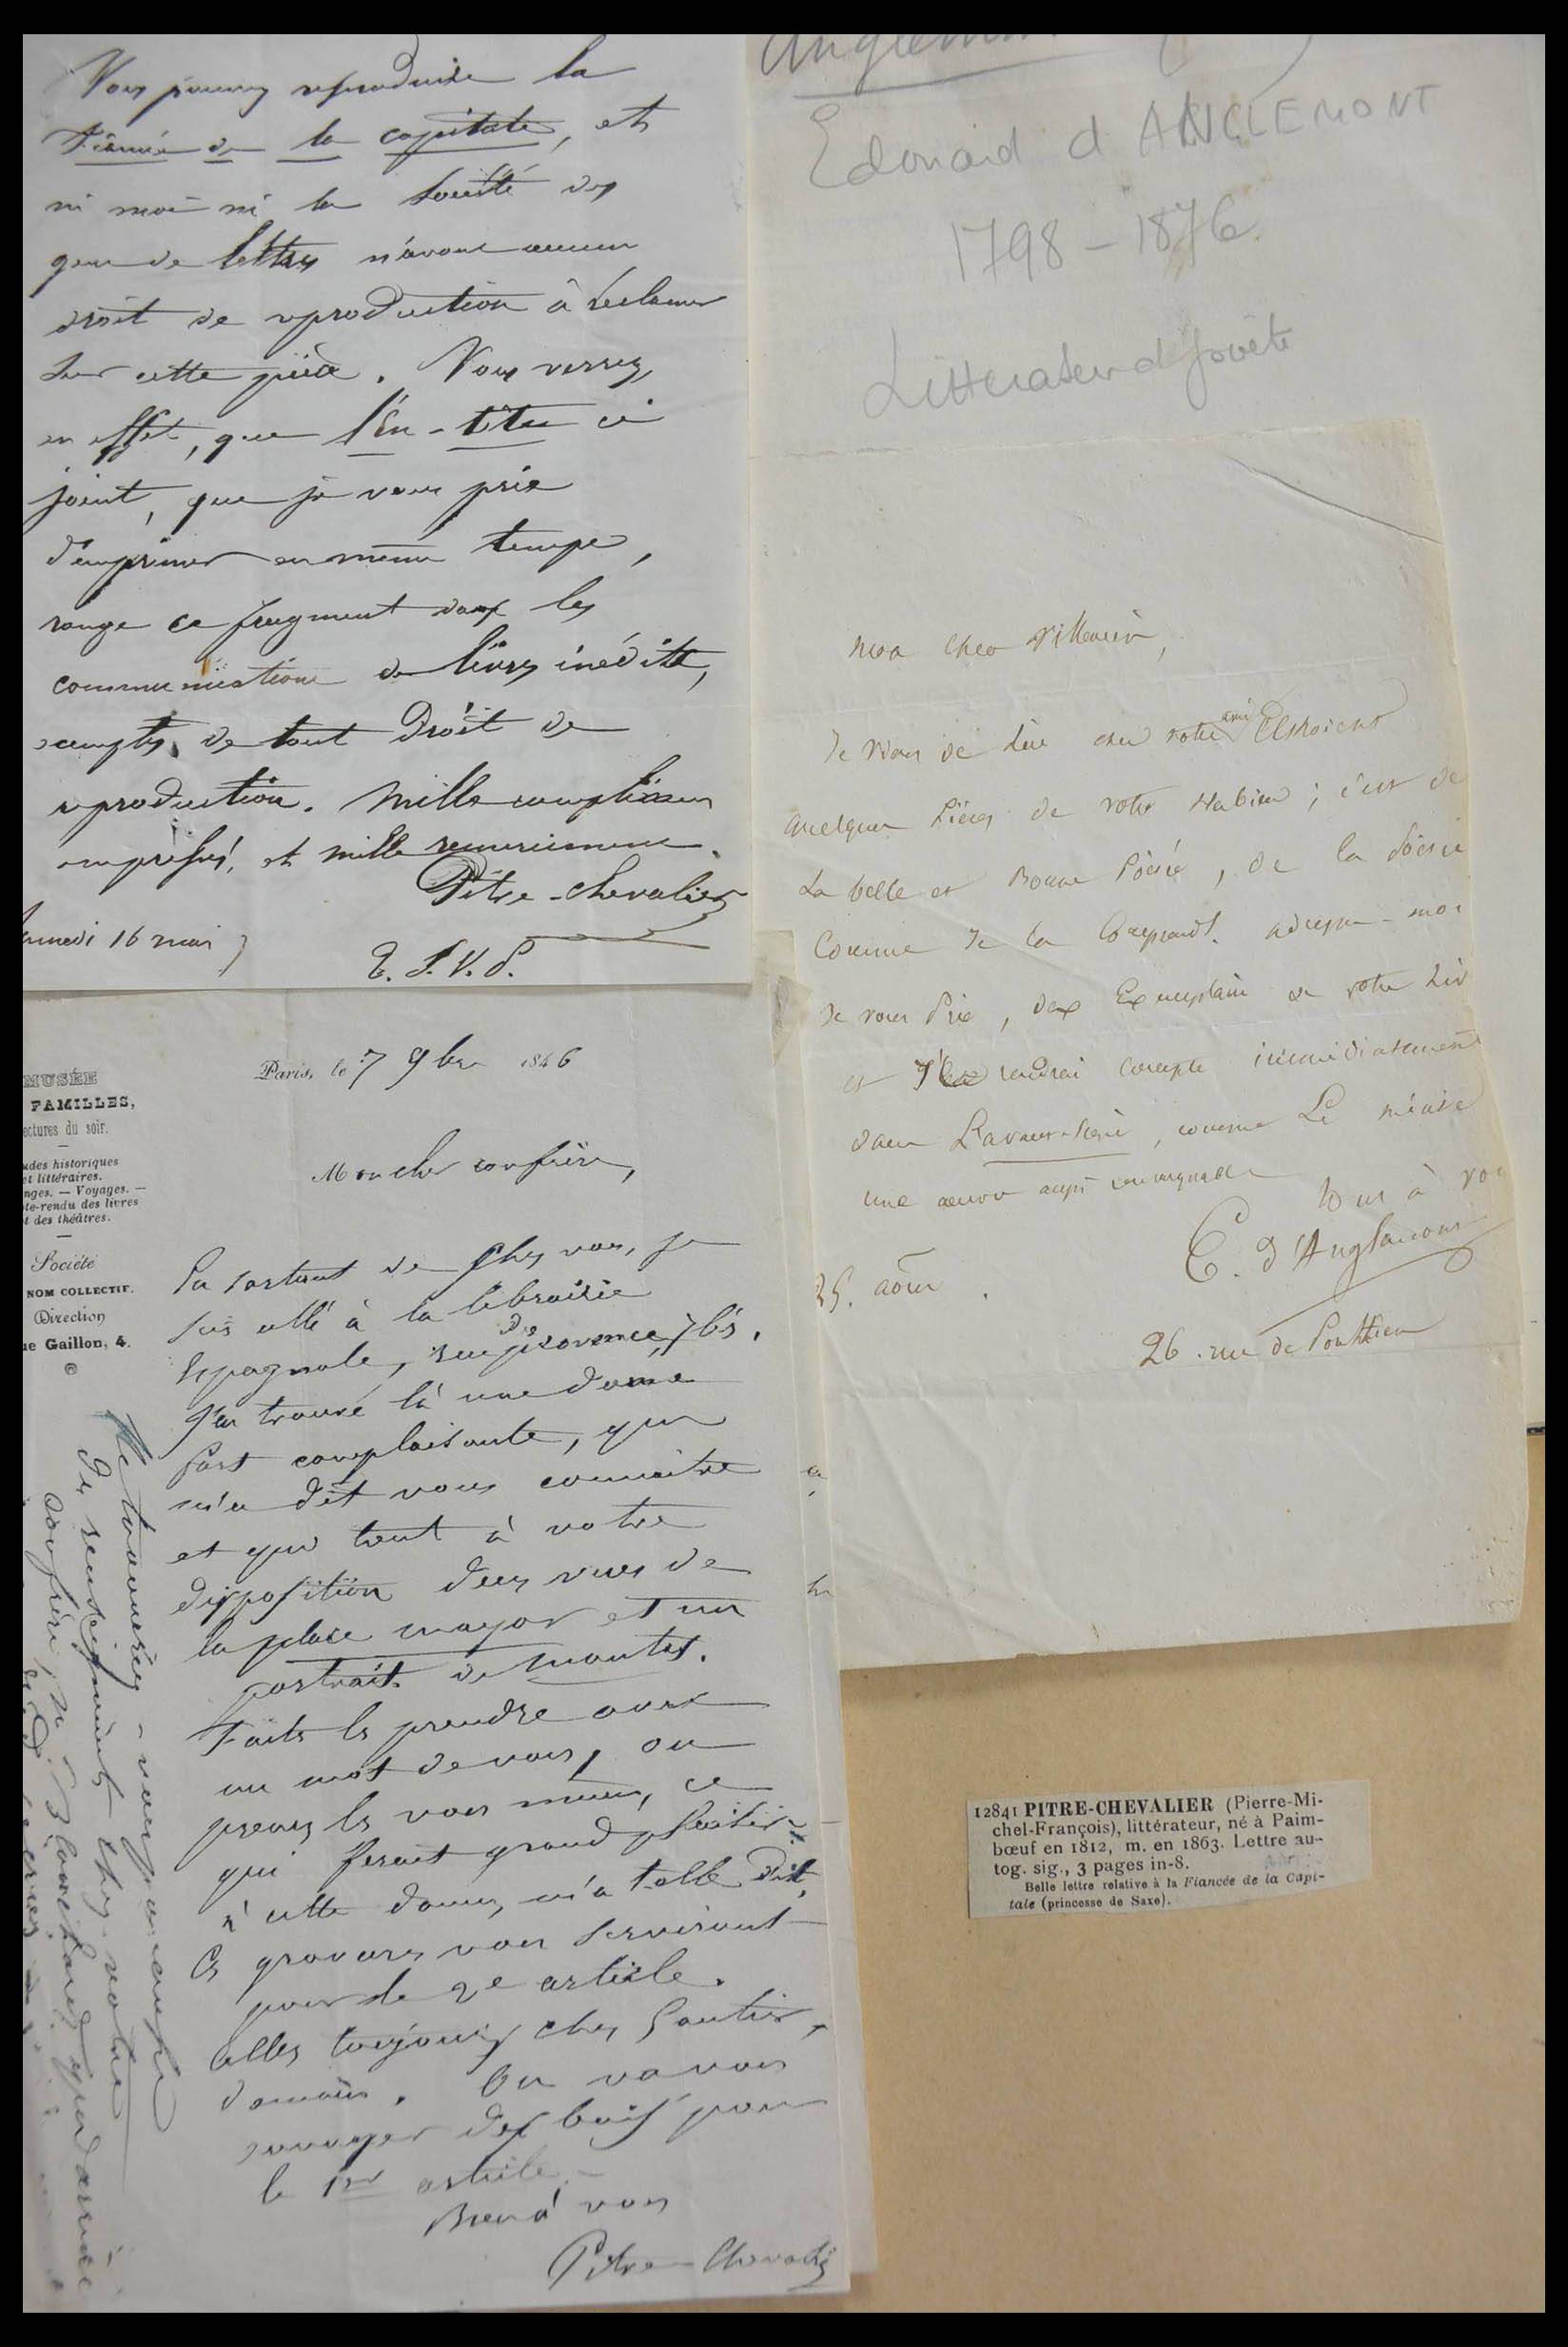 Vous pouvez reproduire la
Fiancée de la capitale, et
ni moi ni la Société des
gens de lettres n'avons aucun
droit de reproduction à réclamer
sur cette pièce. Vous verrez,
en effet, que l'En-tête ci
joint, que je vous prie
d'imprimer en même temps,
range ce fragment dans les
communications de livres inédits,
exempts de tout droit de
reproduction. Mille complimens
empressés, et mille remerciemens.
Pitre-Chevalier
16 mai
T. S. V. P.
MUSÉE
FAMILLES,
ectures du soir.
udes historiques
et littéraires.
nges. — Voyages. —
te-rendu des livres
t des théâtres.
Société
NOM COLLECTIF.
Direction
ue Gaillon, 4.
Paris, le 7 9bre 1846
Mon cher confrère,
En sortant de chez vous, je
suis allé à la librairie
Espagnole, rue de provence,
J'ai trouvé là une dame
fort complaisante, qui
m'a dit vous connaître
et qui tient à votre
disposition des vues de
la place mayor et un
portrait de
Faites les prendre avec
un mot de vous, ou
prenez les vous même, ce
qui ferait grand plaisir
à cette dame, m'a t-elle dit,
Ces gravures vous serviront
pour le 2e article.
Allez toujours chez Gautier,
demain. On va vous
envoyer des bois pour
le 1er article.
Bien à vous
Pitre-Chevalier
Edouard d ANGLEMONT
1798 - 1876
Litterateur et poète
Mon cher
Je viens de lire chez votre ami
quelques pièces de votre ; c'est de
la belle et bonne Poésie, de la Poésie
comme je la comprends. adressez-moi
je vous Prie, deux Exemplaires de votre Liv
et J'en rendrai compte immédiatement
dans L'avant-Scène, comme Le mérite
une œuvre aussi remarquable
tout à vou
E. d'Anglemont
25. août.
26. rue de Ponthieu
12841 PITRE-CHEVALIER (Pierre-Mi-
chel-François), littérateur, né à Paim-
bœuf en 1812, m. en 1863. Lettre au-
tog. sig., 3 pages in-8.
Belle lettre relative à la Fiancée de la Capi-
tale (princesse de Saxe).